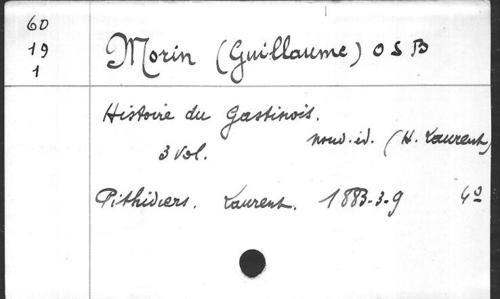 60
19
1
Morin (Guillaume) O S B
Histoire du Gastinois.
3 vol. nouv. éd. (H. Laurent)
Pithiviers. Laurent. 1883-3-9 4º